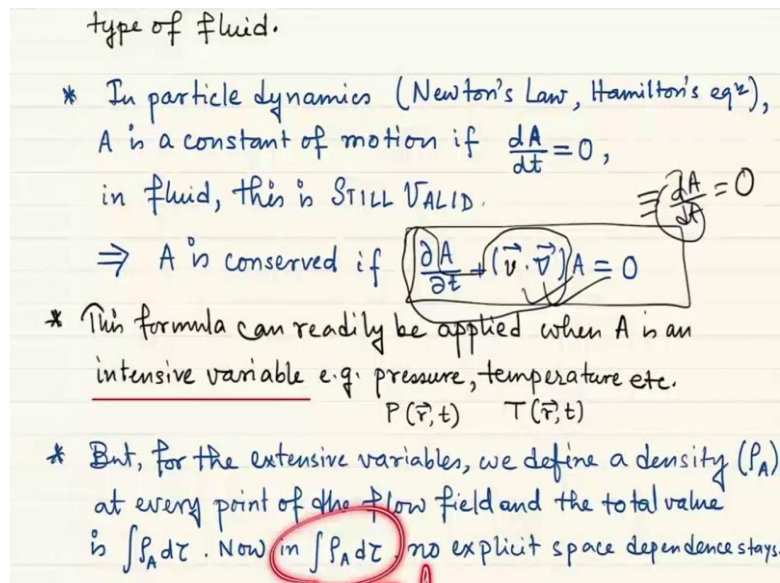 type of fluid.
* In particle dynamics (Newton's Law, Hamilton's eqⁿ),
A is a constant of motion if dA/dt = 0,
in fluid, this is STILL VALID.
≡ dA/dt = 0
⇒ A is conserved if ∂A/∂t + (v⃗·∇⃗)A = 0
* This formula can readily be applied when A is an
intensive variable e.g. pressure, temperature etc.
P(r⃗,t) T(r⃗,t)
* But, for the extensive variables, we define a density (ρ_A)
at every point of the flow field and the total value
is ∫ρ_A dτ. Now in ∫ρ_A dτ no explicit space dependence stays.